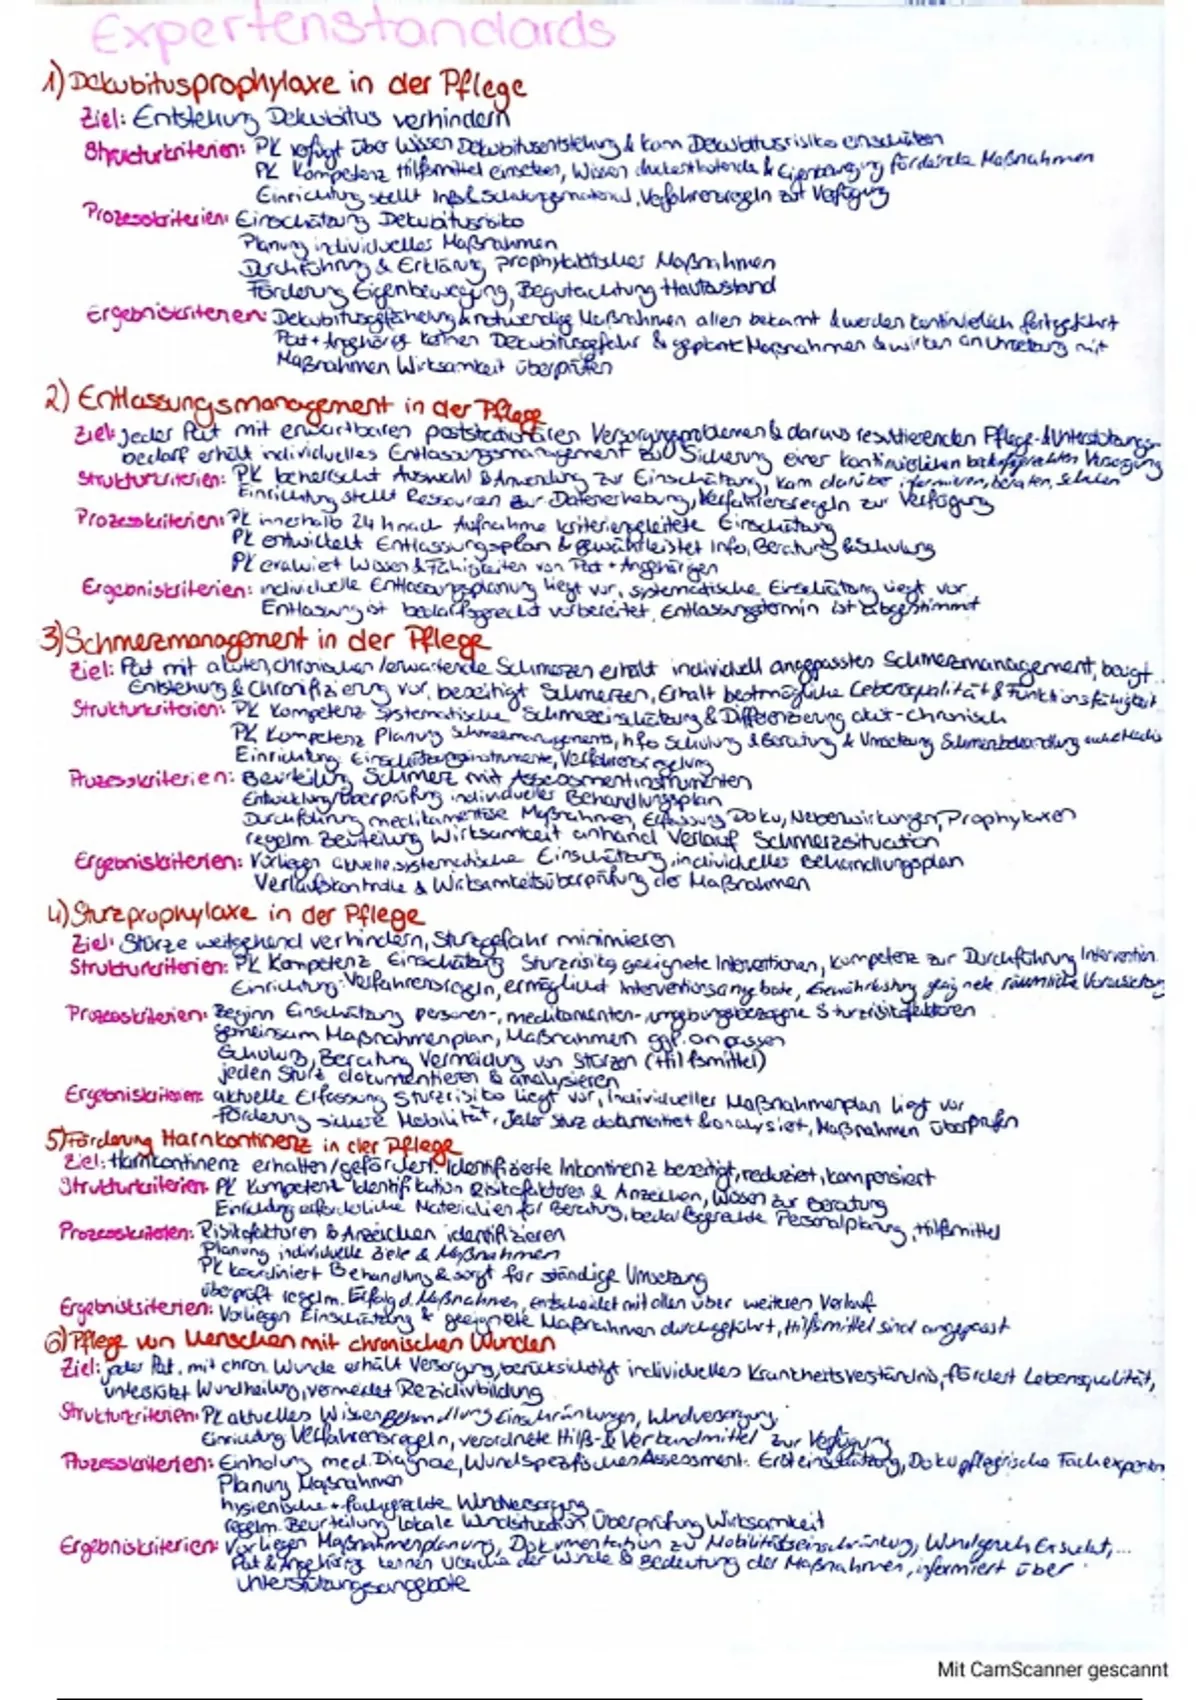 Expertenstandards
1) Dekubitusprophylaxe in der Pflege
Ziel: Entstehung Dekubitus verhindern
Strukturkriterien: PK verfügt über Wissen Dekubitusentstehung & kann Dekubitusrisiko einschätzen
PK Kompetenz Hilfsmittel einsetzen, Wissen druckentlastende & Eigenbewegung fördernde Maßnahmen
Einrichtung stellt Info & Schulungsmaterial, Verfahrensregeln zur Verfügung
Prozesskriterien: Einschätzung Dekubitusrisiko
Planung individuelles Maßnahmen
Durchführung & Erklärung prophylaktischer Maßnahmen
Förderung Eigenbewegung, Begutachtung Hautzustand
Ergebniskriterien: Dekubitusgefährdung & notwendige Maßnahmen allen bekannt & werden kontinuierlich fortgeführt
Pat + Angehörige kennen Dekubitusgefahr & geplante Maßnahmen & wirken an Umsetzung mit
Maßnahmen Wirksamkeit überprüfen
2) Entlassungsmanagement in der Pflege
Ziel: jeder Pat mit erwartbaren poststationären Versorgungsproblemen & daraus resultierenden Pflege- & Unterstützungs-
bedarf erhält individuelles Entlassungsmanagement zur Sicherung einer kontinuierlichen bedarfsgerechten Versorgung
Strukturkriterien: PK beherrscht Auswahl & Anwendung zur Einschätzung, kann darüber informieren, beraten, schulen
Einrichtung stellt Ressourcen zur Datenerhebung, Verfahrensregeln zur Verfügung
Prozesskriterien: PK innerhalb 24 h nach Aufnahme kriteriengeleitete Einschätzung
PK entwickelt Entlassungsplan & gewährleistet Info, Beratung & Schulung
PK evaluiert Wissen & Fähigkeiten von Pat + Angehörigen
Ergebniskriterien: individuelle Entlassungsplanung liegt vor, systematische Einschätzung liegt vor
Entlassung ist bedarfsgerecht vorbereitet, Entlassungstermin ist abgestimmt
3) Schmerzmanagement in der Pflege
Ziel: Pat mit akuten, chronischen / erwartende Schmerzen erhält individuell angepasstes Schmerzmanagement, beugt
Entstehung & Chronifizierung vor, beseitigt Schmerzen, Erhalt bestmögliche Lebensqualität & Funktionsfähigkeit
Strukturkriterien: PK Kompetenz systematische Schmerzeinschätzung & Differenzierung akut-chronisch
PK Kompetenz Planung Schmerzmanagements, Info Schulung & Beratung & Umsetzung Schmerzbehandlung
Einrichtung: Einschätzungsinstrumente, Verfahrensregelung
Prozesskriterien: Beurteilung Schmerz mit Assessmentinstrumenten
Entwicklung/Überprüfung individueller Behandlungsplan
Durchführung medikamentöse Maßnahmen, Erfassung Doku, Nebenwirkungen, Prophylaxen
regelm. Beurteilung Wirksamkeit anhand Verlauf Schmerzsituation
Ergebniskriterien: Vorliegen aktuelle, systematische Einschätzung, individuelles Behandlungsplan
Verlaufskontrolle & Wirksamkeitsüberprüfung der Maßnahmen
4) Sturzprophylaxe in der Pflege
Ziel: Stürze weitgehend verhindern, Sturzgefahr minimieren
Strukturkriterien: PK Kompetenz Einschätzung Sturzrisiko, geeignete Interventionen, Kompetenz zur Durchführung Intervention
Einrichtung: Verfahrensregeln, ermöglicht Interventionsangebote, Gewährleistung geeignete räumliche Voraussetzung
Prozesskriterien: Beginn Einschätzung personen-, medikamenten-, umgebungsbezogene Sturzrisikofaktoren
gemeinsam Maßnahmenplan, Maßnahmen ggf. anpassen
Schulung, Beratung Vermeidung von Stürzen (Hilfsmittel)
jeden Sturz dokumentieren & analysieren
Ergebniskriterien: aktuelle Erfassung Sturzrisiko liegt vor, individueller Maßnahmenplan liegt vor
Förderung sichere Mobilität, Jeder Sturz dokumentiert & analysiert, Maßnahmen überprüfen
5) Förderung Harnkontinenz in der Pflege
Ziel: Harnkontinenz erhalten/gefördert. Identifizierte Inkontinenz beseitigt, reduziert, kompensiert
Strukturkriterien: PK Kompetenz Identifikation Risikofaktoren & Anzeichen, Wissen zur Beratung
Einrichtung erforderliche Materialien für Beratung, bedarfsgerechte Personalplanung, Hilfsmittel
Prozesskriterien: Risikofaktoren & Anzeichen identifizieren
Planung individuelle Ziele & Maßnahmen
PK koordiniert Behandlung & sorgt für ständige Umsetzung
überprüft regelm. Erfolg d. Maßnahmen, entscheidet mit allen über weiteren Verlauf
Ergebniskriterien: Vorliegen Einschätzung & geeignete Maßnahmen durchgeführt, Hilfsmittel sind angepasst
6) Pflege von Menschen mit chronischen Wunden
Ziel: jeder Pat. mit chron. Wunde erhält Versorgung, berücksichtigt individuelles Krankheitsverständnis, fördert Lebensqualität,
unterstützt Wundheilung, vermeidet Rezidivbildung
Strukturkriterien: PK aktuelles Wissen Behandlung Einschränkungen, Wundversorgung
Einrichtung Verfahrensregeln, verordnete Hilfs- & Verbandmittel zur Verfügung
Prozesskriterien: Einholung med. Diagnose, Wundspezifisches Assessment: Ersteinschätzung, Doku pflegerische Fachexperten
Planung Maßnahmen
hygienische + fachgerechte Wundversorgung
regelm. Beurteilung lokale Wundsituation, Überprüfung Wirksamkeit
Ergebniskriterien: Vorliegen Maßnahmenplanung, Dokumentation zu Mobilitätseinschränkung, Wundgeruch, Exsudat, ...
Pat & Angehörige kennen Ursache der Wunde & Bedeutung der Maßnahmen, informiert über
Unterstützungsangebote
Mit CamScanner gescannt